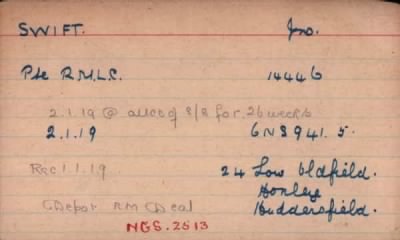 SWIFT. Jno.
Pte R.M.L.I. 14446
2.1.19 @ allce of 8/8 for 26 weeks
2.1.19 6NS941.5.
Rec 1.1.19 24 Low Oldfield.
Honley
Depot RM Deal Huddersfield.
NGS. 2513